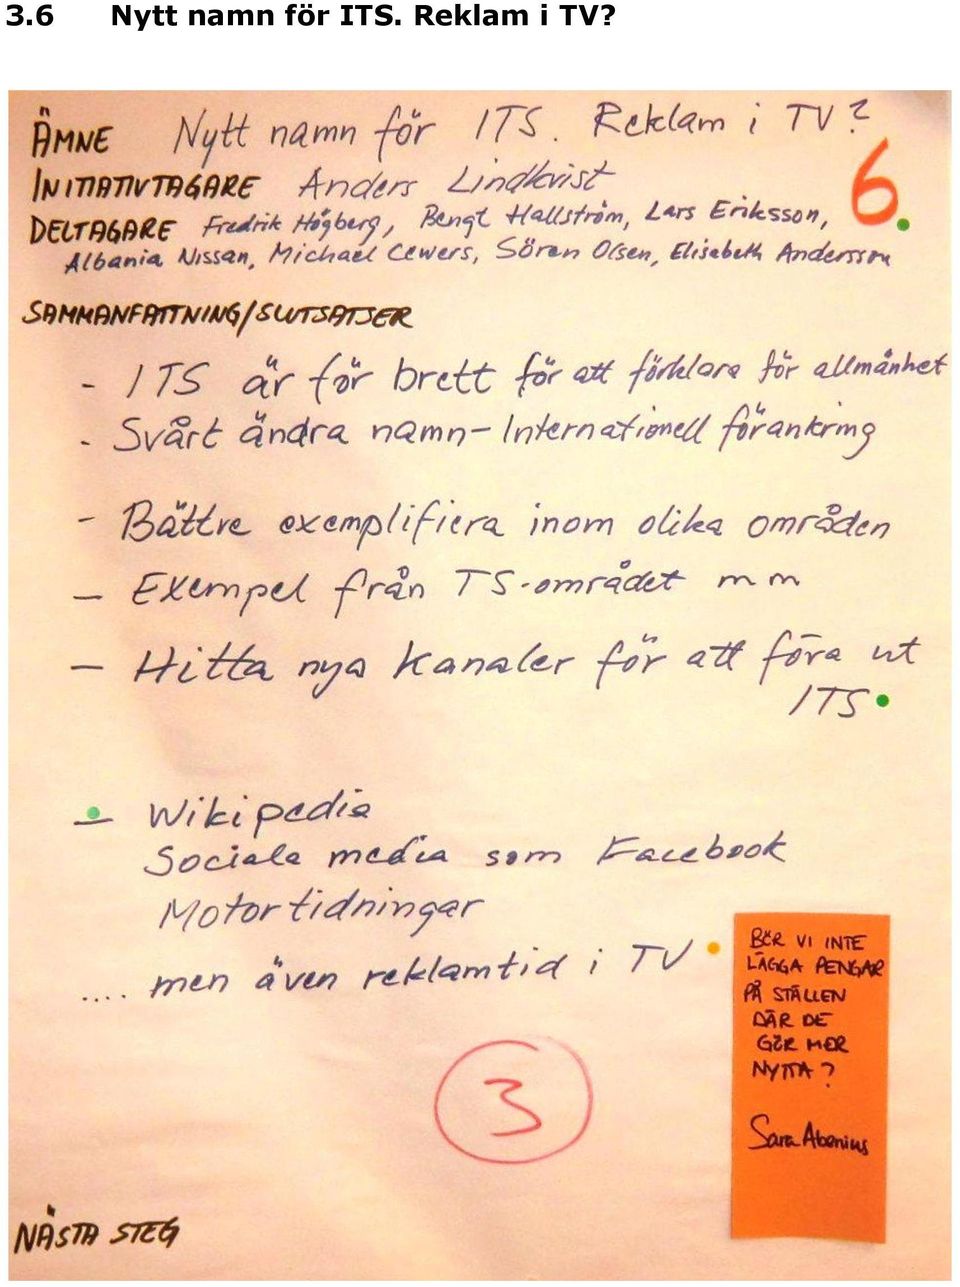 3.6 Nytt namn för ITS. Reklam i TV?
ÄMNE Nytt namn för ITS. Reklam i TV?
INITIATIVTAGARE Anders Lindkvist
6.
DELTAGARE Fredrik Högberg, Bengt Hallström, Lars Eriksson,
Albania Nissan, Michael Cewers, Sören Olsen, Elisabeth Andersson
SAMMANFATTNING/SLUTSATSER
- ITS är för brett för att förklara för allmänhet
- Svårt ändra namn - Internationell förankring
- Bättre exemplifiera inom olika områden
- Exempel från TS-området m m
- Hitta nya kanaler för att föra ut
ITS
- Wikipedia
Sociala media som Facebook
Motortidningar
.... men även reklamtid i TV
BÖR VI INTE
LÄGGA PENGAR
PÅ STÄLLEN
DÄR DE
GÖR MER
NYTTA?
Sara Abenius
3
NÄSTA STEG